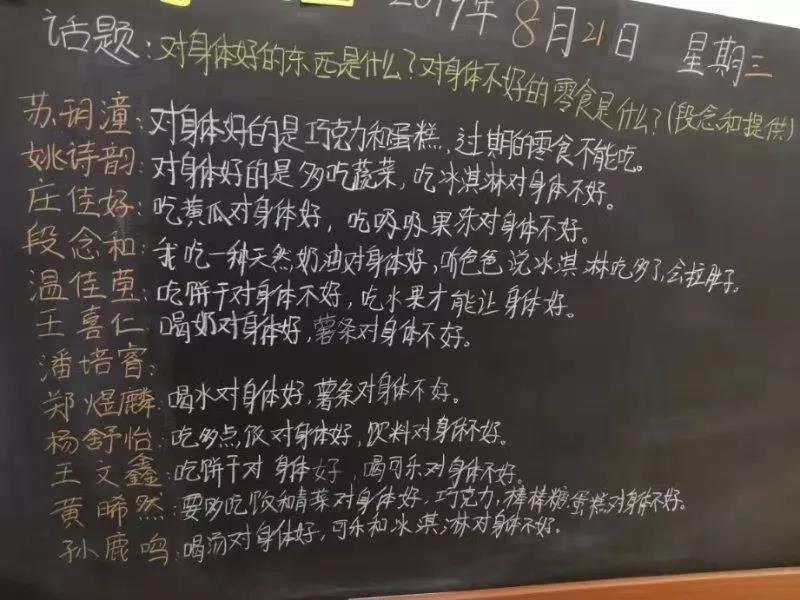 2019年8月21日 星期三
话题：对身体好的东西是什么？对身体不好的零食是什么？(段念和提供)
苏玥潼：对身体好的是巧克力和蛋糕，过期的零食不能吃。
姚诗韵：对身体好的是多吃蔬菜，吃冰淇淋对身体不好。
庄佳好：吃黄瓜对身体好，吃吸吸果冻对身体不好。
段念和：我吃一种天然奶油对身体好，听色色说冰淇淋吃多了，会拉肚子。
温佳莹：吃饼干对身体不好，吃水果才能让身体好。
王喜仁：喝奶对身体好，薯条对身体不好。
潘培睿：
郑煜麟：喝水对身体好，薯条对身体不好。
杨舒怡：吃多点饭对身体好，饮料对身体不好。
王文鑫：吃饼干对身体好 喝可乐对身体不好。
黄晞然：要多吃饭和青菜对身体好，巧克力，棒棒糖蛋糕对身体不好。
孙鹿鸣：喝汤对身体好，可乐和冰淇淋对身体不好。